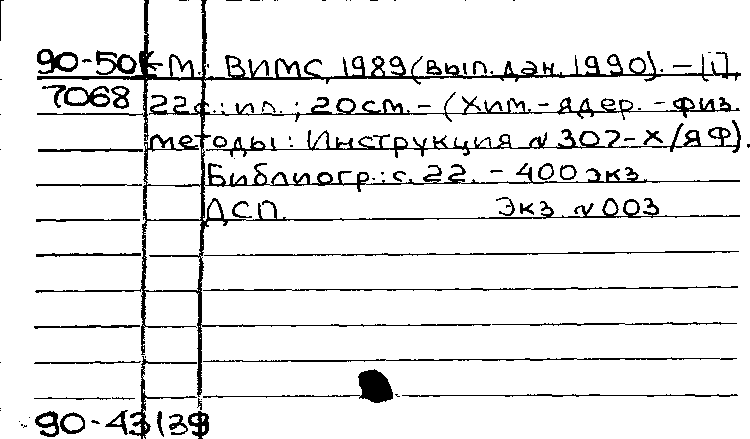 90-50к -М.: ВИМС, 1989 (вып. дан. 1990). - [1],
7068 22с.: ил.; 20см. - (Хим.-ядер.-физ.
методы: Инструкция № 307-Х/ЯФ).
Библиогр.: с. 22. - 400 экз.
ДСП. Экз. № 003
90-43139